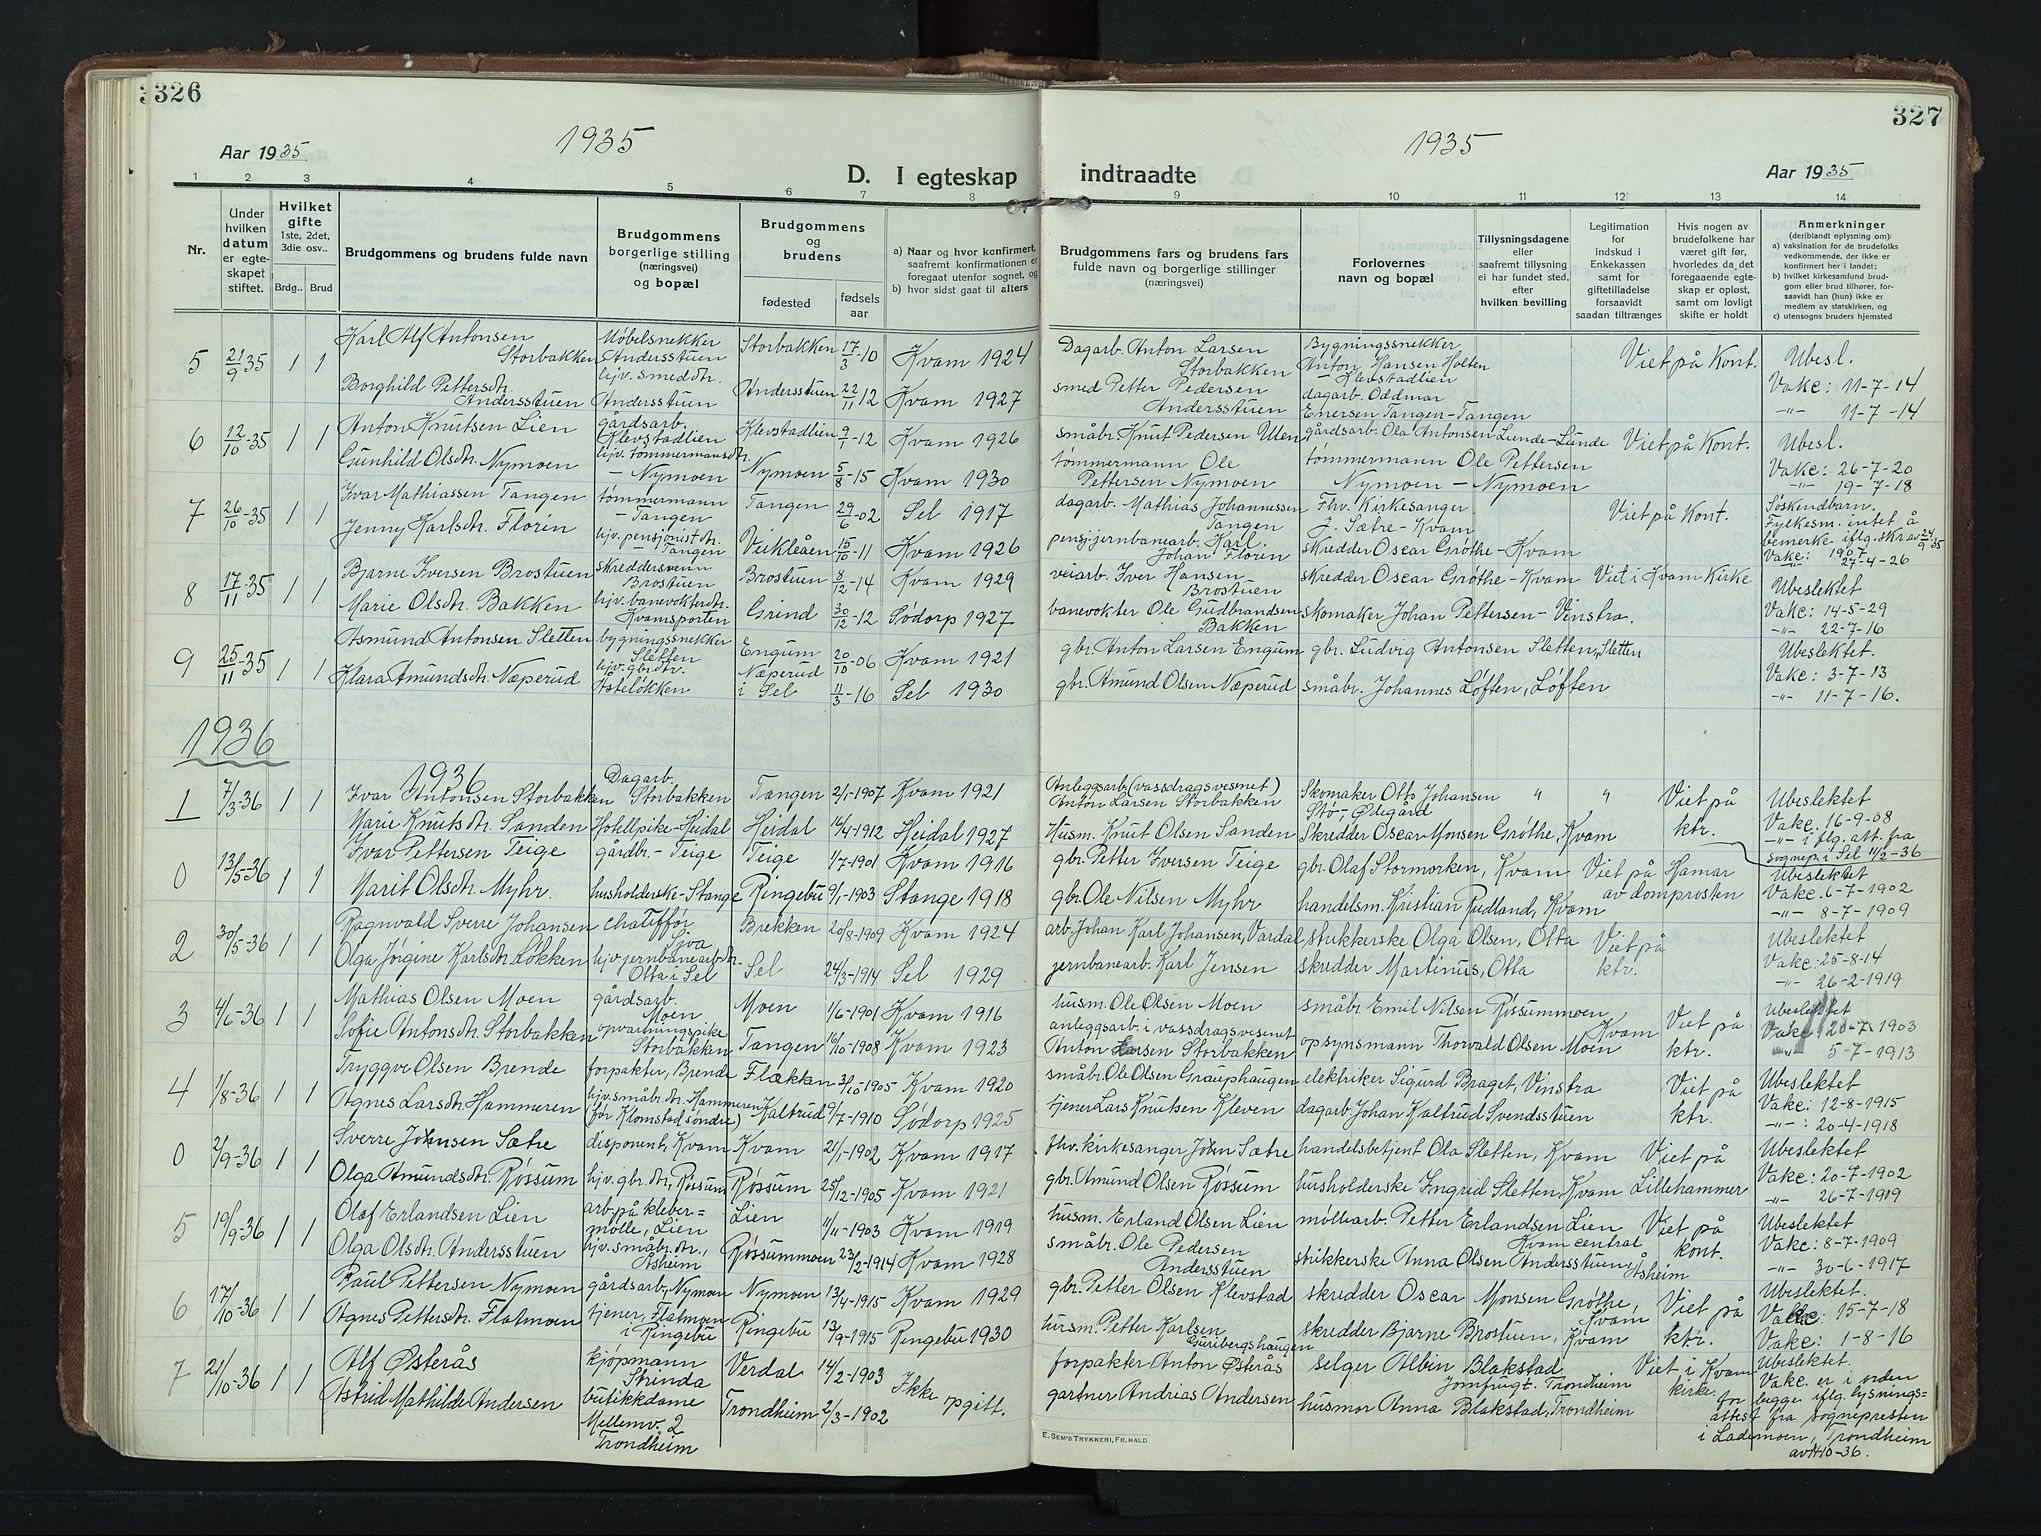 326
1935
Aar 1935
D. I egteskap
1 2 3 4 5 6 7 8
Nr.
Under hvilken datum er egteskapet stiftet.
Hvilket gifte 1ste, 2det, 3die osv..
Brdg.. Brud
Brudgommens og brudens fulde navn
Brudgommens borgerlige stilling (næringsvei) og bopæl
Brudgommens og brudens
fødested
fødsels aar
a) Naar og hvor konfirmert, saafremt konfirmationen er foregaat utenfor sognet, og
b) hvor sidst gaat til alters
5 21/9 35 1 1 Karl Alf Antonsen Storbakken Møbelsnekker Andersstuen Storbakken 17/3-10 Kvam 1924
Borghild Pettersdtr. Andersstuen hjv. smeddtr. Andersstuen Andersstuen 22/11 12 Kvam 1927
6 12/10-35 1 1 Anton Knutsen Lien gårdsarb. Klevstadlien Klevstadlien 9/1-12 Kvam 1926
Gunhild Olsdtr. Nymoen hjv. tømmermannsdtr. - Nymoen Nymoen 5/8-15 Kvam 1930
7 26/10-35 1 1 Ivar Mathiassen Tangen tømmermann - Tangen Tangen 29/6-02 Sel 1917
Jenny Karlsdtr. Florin hjv. pensjonistdtr. - Tangen Veikleåen 15/10-11 Kvam 1926
8 17/11-35 1 1 Bjarne Iversen Brostuen skreddersvenn Brostuen Brostuen 8/12-14 Kvam 1929
Marie Olsdtr. Bakken hjv. banevokterdtr. Kvamsporten Grind 30/12-12 Sødorp 1927
9 25/11-35 1 1 Asmund Antonsen Sletten bygningssnekker Sletten Engum 20/10-06 Kvam 1921
Klara Amundsdtr. Næperud hjv. gbr.dtr. Åsteløkken Næperud i Sel 11/3-16 Sel 1930
1936
1936
1 7/3-36 1 1 Ivar Antonsen Storbakken Dagarb. Storbakken Tangen 2/1-1907 Kvam 1921
Marie Knutsdtr. Sanden Hotellpike-Heidal Heidal 16/4-1912 Heidal 1927
0 13/5-36 1 1 Ivar Pettersen Teige gårdbr.- Teige Teige 1/7-1901 Kvam 1916
Marit Olsdtr. Myhr. husholderske-Stange Ringebu 9/1-1903 Stange 1918
2 30/5-36 1 1 Ragnvald Sverre Johansen chauffør Brekken 20/8-1909 Kvam 1924
Olga Jørgine Karlsdtr. Løkken hjv. jernbanearbdtr. Otta i Sel Sel 24/3-1914 Sel 1929
3 4/6-36 1 1 Mathias Olsen Moen gårdsarb. Moen Moen 1/6-1901 Kvam 1916
Sofie Antonsdtr. Storbakken opvartningspike Storbakken Tangen 16/10-1908 Kvam 1923
4 1/8-36 1 1 Tryggve Olsen Brende forpakter, Brende Flækken 3/10-1905 Kvam 1920
Agnes Larsdtr. Hammeren hjv. småbr.dtr. Hammeren (før Klomstad søndre) - Kaltrud 9/7-1910 Sødorp 1925
0 2/9-36 1 1 Sverre Johnsen Sætre disponent, Kvam Kvam 21/1-1902 Kvam 1917
Olga Amundsdtr. Røssum hjv. gbr.dtr., Røssum Røssum 25/12-1905 Kvam 1921
5 19/9-36 1 1 Olaf Erlandsen Lien arb. på kleber=mølle, Lien Lien 11/11-1903 Kvam 1919
Olga Olsdtr. Andersstuen hjv. småbr.dtr., Åsheim Røssummoen 23/2-1914 Kvam 1928
6 17/10-36 1 1 Paul Pettersen Nymoen gårdsarb., Nymoen Nymoen 13/4-1915 Kvam 1929
Agnes Pettersdtr. Flatmoen tjener, Flatmoen i Ringebu Ringebu 13/9-1915 Ringebu 1930
7 21/10-36 1 1 Alf Østerås kjøpmann Strinda Verdal 14/2-1903 Ikke opgitt.
Astrid Mathilde Andersen butikkdame Mellemv. 2 Trondheim Trondheim 2/3-1902
327
1935
indtraadte
Aar 1935
9 10 11 12 13 14
Brudgommens fars og brudens fars fulde navn og borgerlige stillinger (næringsvei)
Forlovernes navn og bopæl
Tillysningsdagene eller saafremt tillysning ei har fundet sted, efter hvilken bevilling
Legitimation for indskud i Enkekassen samt for giftetilladelse forsaavidt saadan tiltrænges
Hvis nogen av brudefolkene har været gift før, hvorledes da det foregaaende egteskap er opløst, samt om lovligt skifte er holdt
Anmerkninger (deriblandt oplysning om):
a) vaksination for de brudefolks vedkommende, der ikke er konfirmert her i landet;
b) hvilket kirkesamfund brudgom eller brud tilhører, forsaavidt han (hun) ikke er medlem av statskirken, og
c) utensogns bruders hjemsted
Dagarb. Anton Larsen Storbakken Bygningssnekker Anton Hansen Holten - Klevstadlien Viet på Kont. Ubesl. Vakc: 11-7-14
smed Petter Pedersen Andersstuen dagarb. Oddmar Enersen Tangen-Tangen -"- 11-7-14
småbr. Knut Pedersen Ulen gårdsarb. Ola Antonsen Lunde-Lunde Viet på Kont. Ubesl. Vakc: 26-7-20
tømmermann Ole Pettersen Nymoen tømmermann Ole Pettersen Nymoen - Nymoen -"- 19-7-18
dagarb. Mathias Johannessen Tangen Fhv. Kirkesanger J. Sætre-Kvam Viet på Kont. Søskendbarn. Fylkesm. intet å bemerke iflg. skr. av 24/9 35
pensj. jernbanearb. Karl Johan Florin skredder Oscar Grøthe-Kvam Vakc: 1907 -"- 27-4-26
veiarb. Iver Hansen Brostuen skredder Oscar Grøthe-Kvam Viet i Kvam Kirke Ubeslektet Vakc: 14-5-29
banevokter Ole Gudbrandsen Bakken skomaker Johan Pettersen-Vinstra. -"- 22-7-16
gbr. Anton Larsen Engum gbr. Ludvig Antonsen Sletten, Sletten Ubeslektet. Vakc: 3-7-13
gbr. Amund Olsen Næperud småbr. Johannes Løften, Løften -"- 11-7-16.
Anleggsarb (vassdragsvesenet) Anton Larsen Storbakken Skomaker Otto Johansen Stø, Ødegård " " Viet på ktr. Ubeslektet Vakc: 16-9-08
Husm. Knut Olsen Sanden Skredder Oscar Monsen Grøthe, Kvam -"- iflg. att. fra sognep. i Sel 11/2-36
gbr. Petter Iversen Teige gbr. Olaf Stormorken, Kvam Viet på Hamar av domprosten Ubeslektet Vakc. 6-7-1902
gbr. Ole Nilsen Myhr handelsm. Kristian Rudland, Kvam -"- 8-7-1909
arb. Johan Karl Johansen, Vardal, strikkerske Olga Olsen, Otta Viet på ktr. Ubeslektet Vakc: 25-8-14
jernbanearb. Karl Jensen skredder Martinus, Otta -"- 26-2-1919
husm. Ole Olsen Moen småbr. Emil Nilsen Røssummoen, Kvam Viet på ktr. Ubeslektet Vakc 20-7-1903
anleggsarb. i vassdragsvesenet Anton Larsen Storbakken opsynsmann Thorvald Olsen Moen 5-7-1913
småbr. Ole Olsen Grauphaugen elektriker Sigurd Braget, Vinstra Viet på ktr. Ubeslektet Vakc: 12-8-1915
tjener Lars Knutsen Kleven dagarb. Johan Kaltrud Svendsstuen -"-: 20-4-1918
fhv. kirkesanger John Sætre handelsbetjent Ola Sletten, Kvam Viet på Lillehammer Ubeslektet Vakc: 20-7-1902
gbr. Amund Olsen Røssum husholderske Ingrid Sletten, Kvam -"- 26-7-1919
husm. Erland Olsen Lien møllearb. Petter Erlandsen Lien Kvam central Viet på kont. Ubeslektet Vakc: 8-7-1909
småbr. Ole Pedersen Andersstuen strikkerske Anna Olsen Andersstuen, Åsheim -"- 30-6-1917
gbr. Petter Olsen Klevstad skredder Oscar Monsen Grøthe, Kvam Viet på ktr. Ubeslektet. Vakc: 15-7-18
husm. Petter Karlsen Guribergshaugen skredder Bjarne Brostuen, Kvam Vakc: 1-8-16
forpakter Anton Østerås selger Albin Blakstad Jomfrugt. Trondheim Viet i Kvam kirke. Ubeslektet. Vakc. er i orden
gartner Andrias Andersen husmor Anna Blakstad, Trondheim for begge iflg. lysnings=attest fra sognepresten i Lademoen, Trondheim av 14/10-36.
E. SEM'S TRYKKERI, FR. HALD